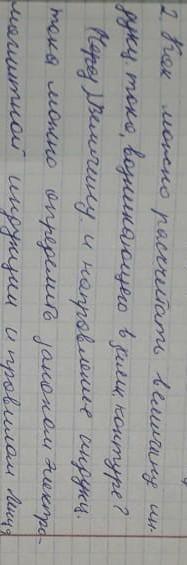 2. Как можно рассчитать величину ин-
дукц. тока, возникающего в контуре?
Величину и направление индукц.
тока можно определить законом электро-
магнитной индукции и правилом Ленца